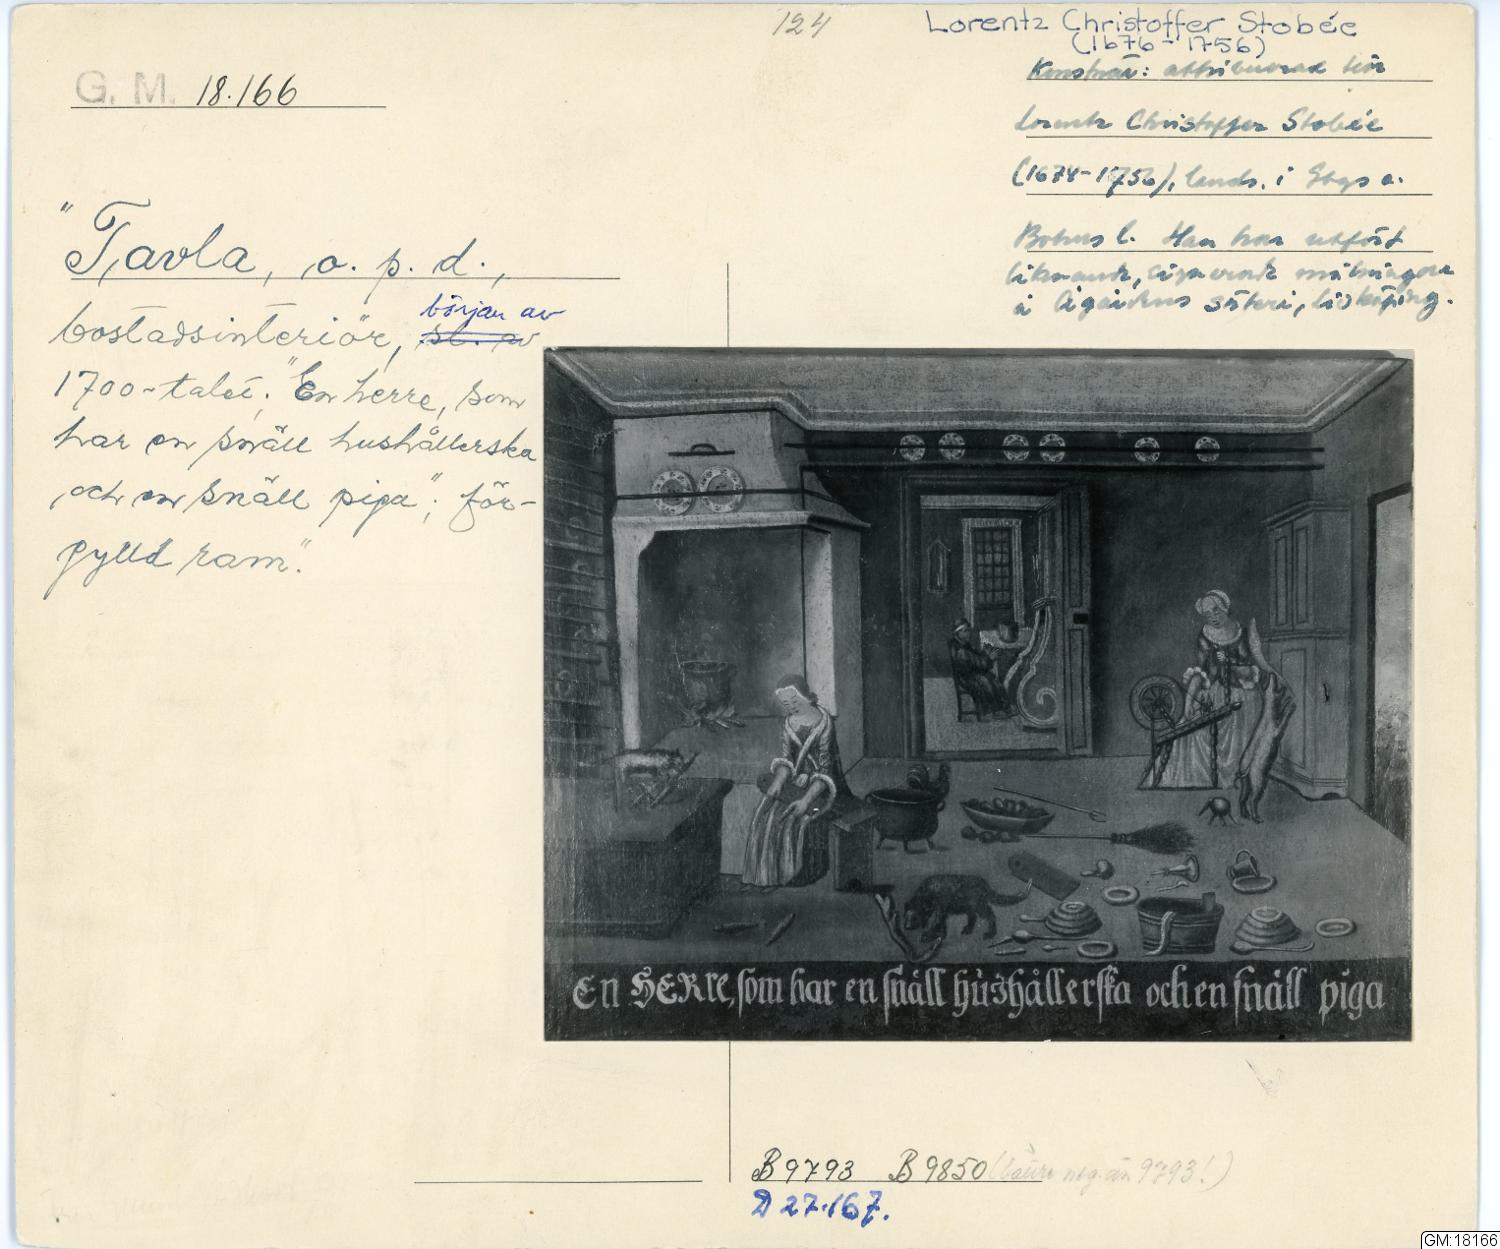 124
Lorentz Christoffer Stobée
(1676-1756)
G. M. 18.166
attribuerad
Lorentz Christoffer Stobée
lands. i Gbgs o.
Bohus l. Han har utfört
liknande, signerade målningar
å säteri, Lidköping.
"Tavla, o. p. d.,
bostadsinteriör, början av
1700-talet; "En herre, som
har en snäll hushållerska
och en snäll piga"; för-
gylld ram."
En HERRe, som har en snäll hushållerska och en snäll piga
B 9793 B 9850 (bättre neg. än 9793!)
D 27.167.
GM:18166